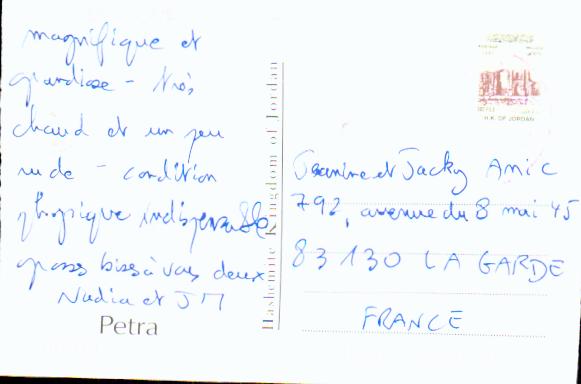 magnifique et
grandiose - Très
chaud et un peu
rude - condition
physique indispensable
grosses bises à vous deux
Nadia et JM
Petra
Hashemite Kingdom of Jordan
H.K. OF JORDAN
Jeanine et Jacky AMIC
792, avenue du 8 mai 45
83130 LA GARDE
FRANCE